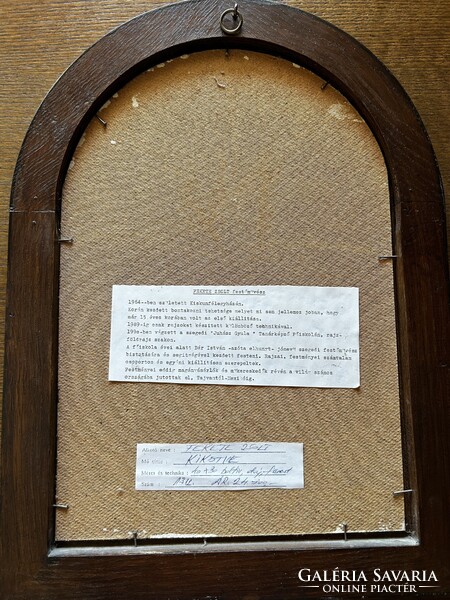 FEKETE ZSOLT festőművész
1964-ben született Kiskunfélegyházán.
Korán kezdett bontakozni tehetsége melyet mi sem jellemez jobban, hogy
már 15 éves korában volt az első kiállítása.
1989-ig csak rajzokat készített különböző technikával.
1990-ben végzett a szegedi "Juhász Gyula" Tanárképző Főiskolán, rajz-
földrajz szakon.
A főiskola évei alatt Dér István -azóta elhunyt- jónevű szegedi festőművész
biztatására és segítségével kezdett festeni. Rajzai, festményei számtalan
csoportos és egyéni kiállításon szerepeltek.
Festményei eddig magángyűjtők és műkereskedők révén a világ számos
országába jutottak el, Tajvantól-
Alkotó neve : FEKETE ZSOLT
Mű címe : KIKÖTVE
Méret és technika :
Szám :
GALÉRIA SAVARIA
ONLINE PIACTÉR